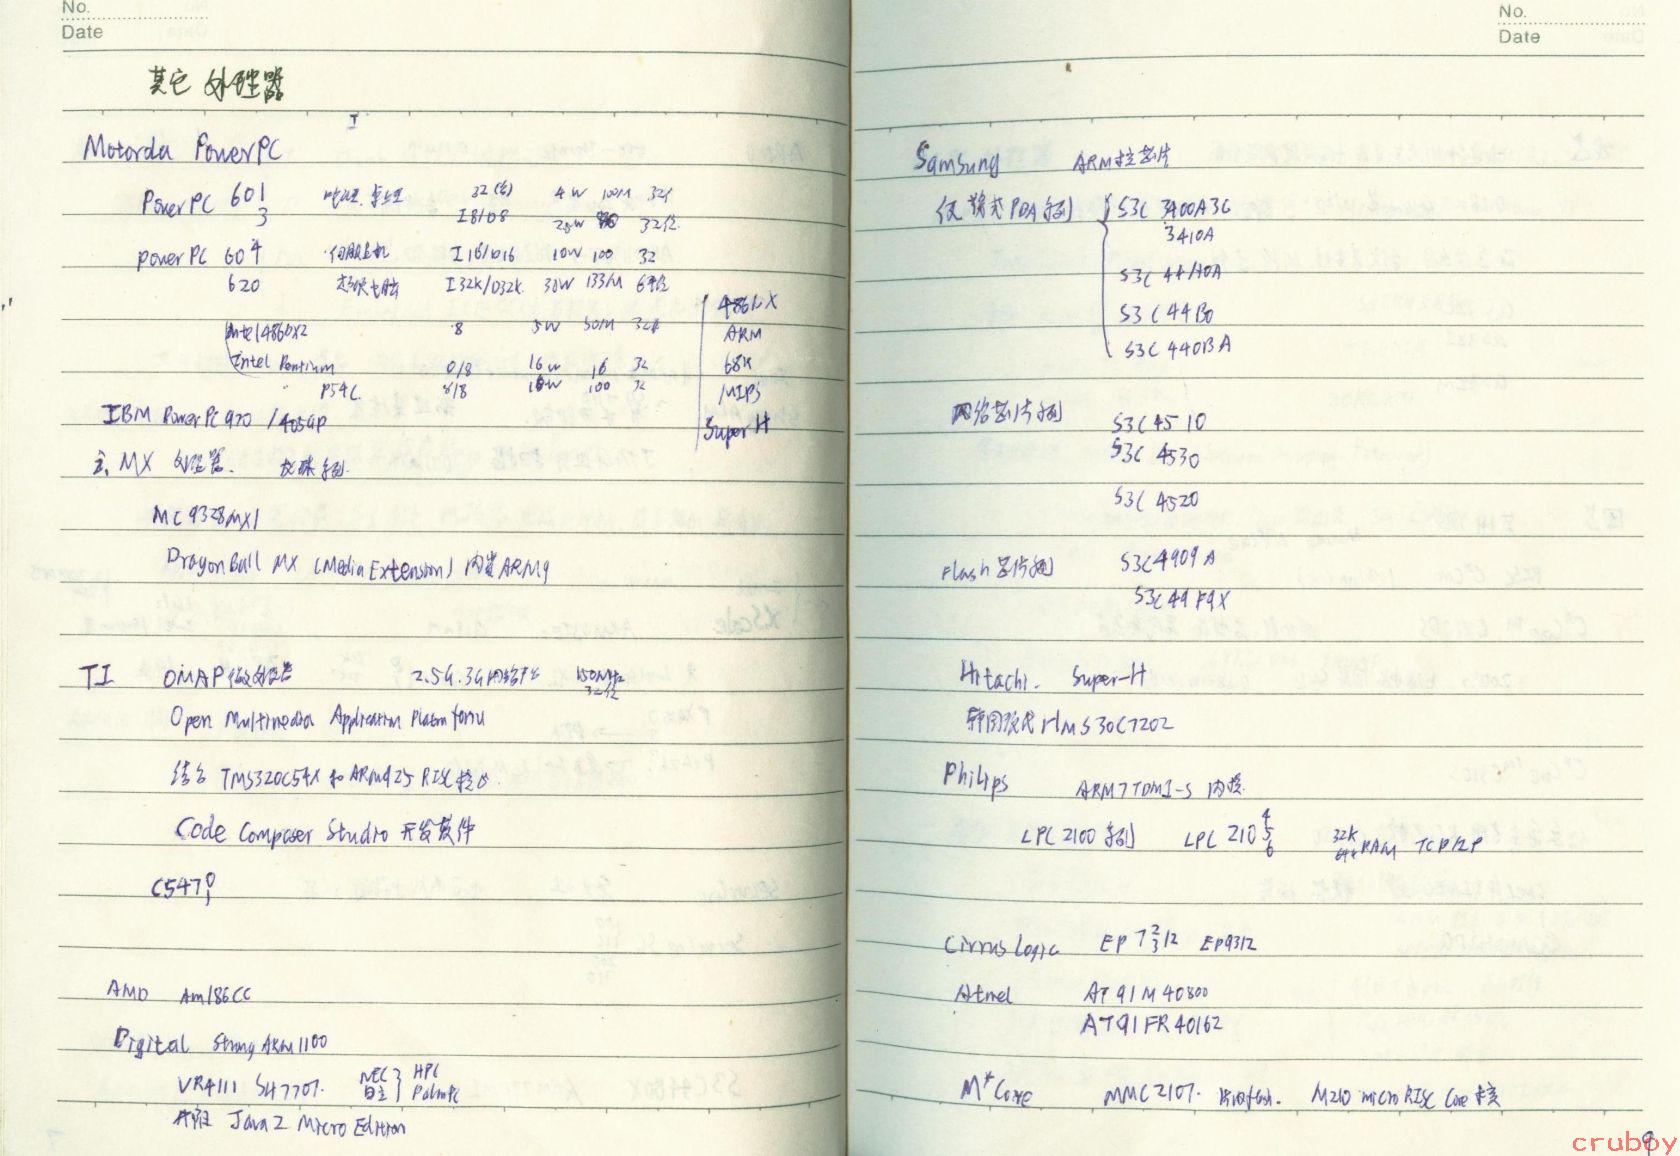 No.
Date
其它处理器
Motorola PowerPC
PowerPC 601 32位 4W 100M 32位
3 I8/D8 20W 32位
PowerPC 604 伺服主机 I16/D16 10W 100 32
620 I32K/D32K 30W 133M 64位
486DX
ARM
68K
MIPS
Super H
Intel 486DX2 8 5W 50M 32位
Intel Pentium 8/8 16W 16 32
P54C 8/8 10W 100 32
IBM PowerPC 970 / 405GP
i.MX 处理器. 龙珠系列
MC9328MX1
DragonBall MX (Media Extension) 内置ARM9
TI OMAP微处理器 2.5G.3G网络 150MHz
32位
Open Multimedia Application Platform
结合 TMS320C54X 和 ARM925 RISC 核心.
Code Composer Studio 开发软件
C5470
1
AMD Am186CC
Digital StrongARM1100
VR4111 SH7707. NEC 日立 } HPC PalmPC
Java 2 Micro Edition
No.
Date
Samsung ARM核芯片
便携式PDA系列 S3C 3400A36
3410A
S3C 44A0A
S3C 44B0
S3C 440BA
网络芯片系列 S3C4510
S3C 4530
S3C 4520
Flash芯片系列 S3C4909A
S3C49F9X
Hitachi. Super-H
韩国现代 HMS30C7202
Philips ARM7TDMI-S 内核.
LPC 2100 系列 LPC 210 4 5 6 32K 64K RAM TCP/IP
Cirrus Logic EP 7 2 3 12 EP9312
Atmel AT91M40800
AT91FR40162
M*Core MMC2107. 片内flash. M210 micro RISC Core 核
9
cruboy